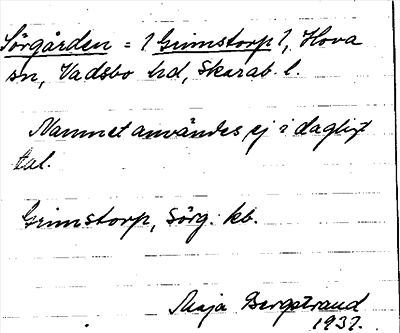 Sörgården = 1 Grimstorp 1, Hova
sn, Vadsbo hd, Skarab. l.
Namnet användes ej i dagligt
tal.
Grimstorp, Sörg. kb.
Maja Bergstrand
1937.